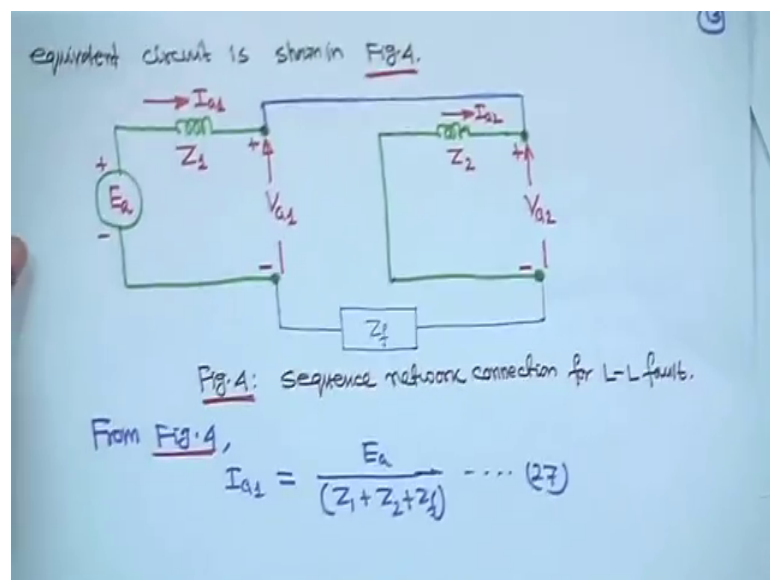 equivalent circuit is shown in Fig.4.
Ia1
Ia2
+
Z1
+
Z2
+
Ea
Va1
Va2
-
-
-
Zf
Fig.4: sequence network connection for L-L fault.
From Fig.4,
Ia1 = Ea / (Z1 + Z2 + Zf) .... (27)